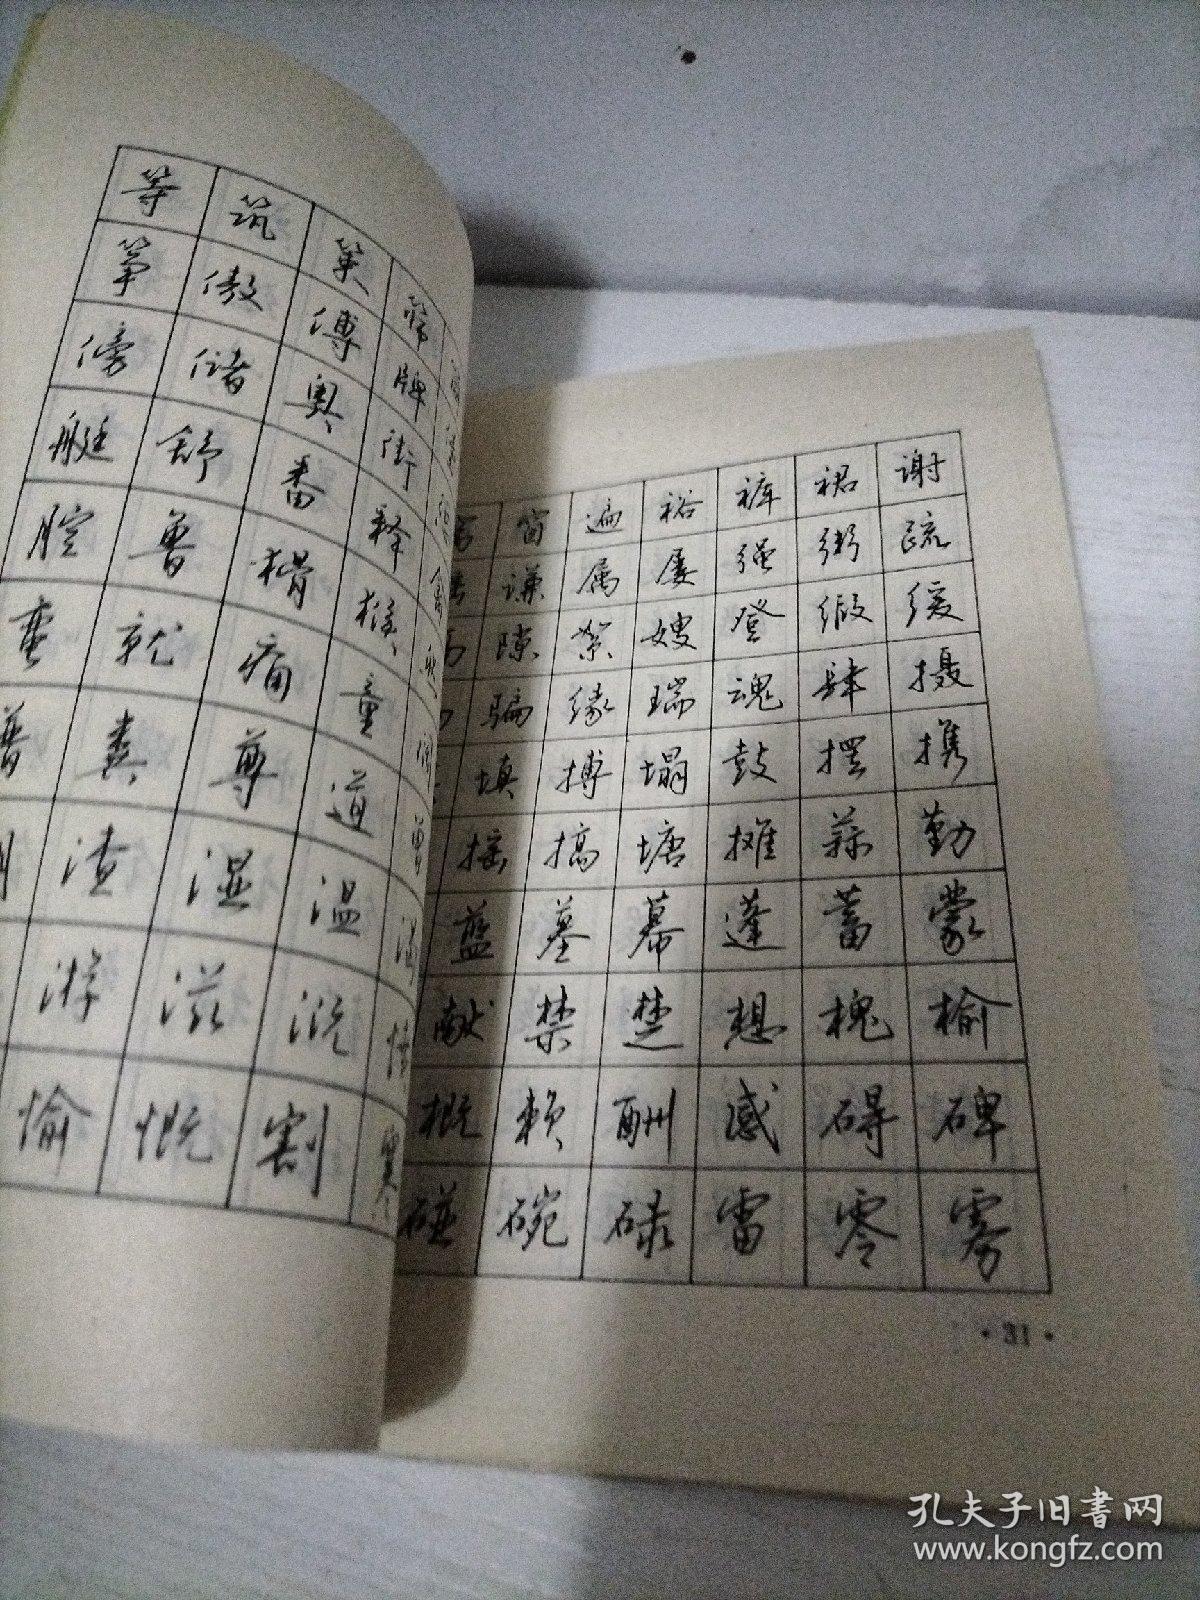 等 筑 策 筛
筝 傲 傅 牌
傍 储 奥 街
艇 舒 番 释
腔 鲁 猾 猴
蛮 就 痛 童
普 粪 尊 道
渣 湿 温 滑
游 滋 溉
愉 慨 割 寒
窗 遍 裕 裤 裙 谢
谦 属 屡 强 粥 疏
隙 絮 嫂 登 缎 缓
骗 缘 瑞 魂 肆 摄
填 搏 塌 鼓 摆 携
摇 搞 塘 摊 蒜 勤
蓝 墓 幕 蓬 蓄 蒙
献 禁 楚 想 槐 榆
概 赖 酬 感 碍 碑
碰 碗 碌 雷 零 雾
·31·
孔夫子旧书网
www.kongfz.com